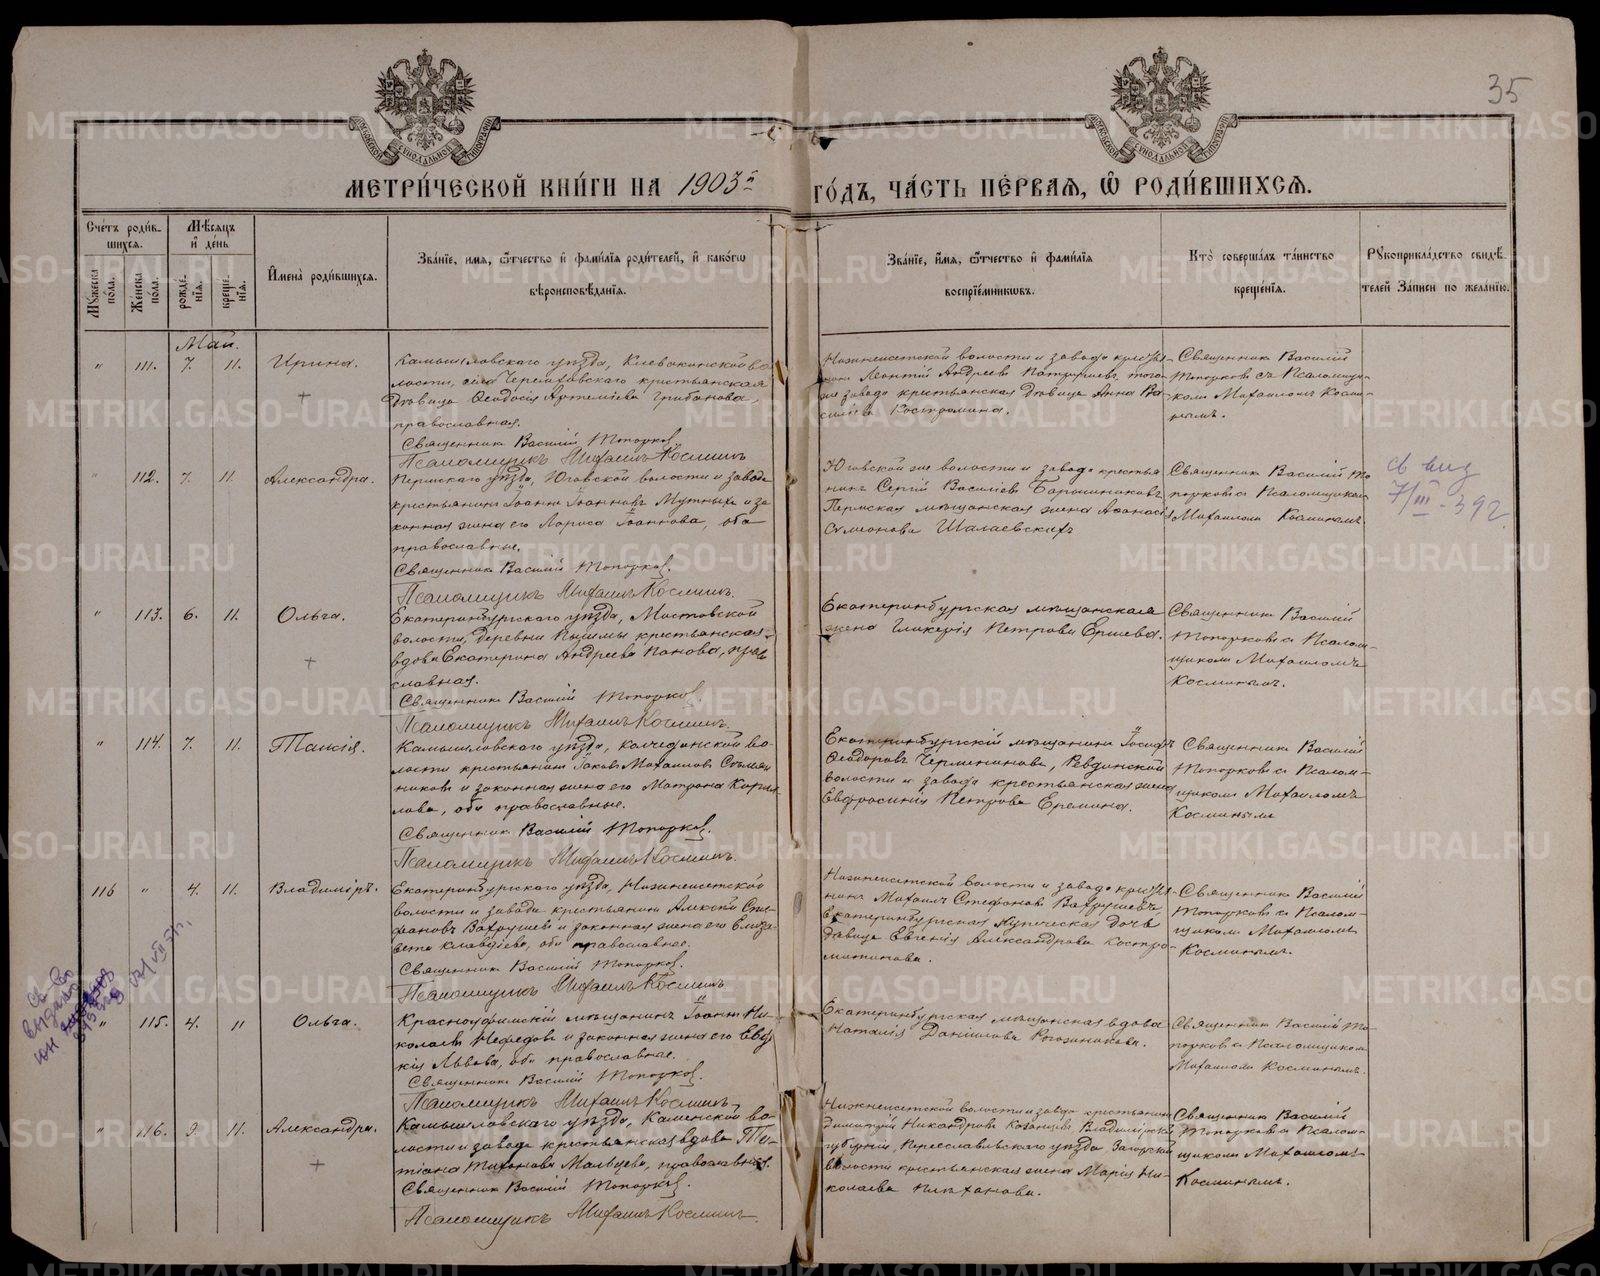 35
МОСКОВСКОЙ СѴНОДАЛЬНОЙ ТИПОГРАФІИ
МОСКОВСКОЙ СѴНОДАЛЬНОЙ ТИПОГРАФІИ
МЕТРИ́ЧЕСКОЙ КНИ́ГИ НА 1903й ГО́ДЪ, ЧА́СТЬ ПЕ́РВАЯ, Ѡ РОДИ́ВШИХСЯ.
Сче́тъ роди́в-
шихся.
Мѣ́сяцъ
и҆ де́нь
Мꙋ́жеска
по́ла.
Же́нска
по́ла.
рожде́-
нїя.
креще́-
нїя.
И҆мена̀ роди́вшихся.
Зва́нїе, и҆́мя, ѻ҆́тчество и҆ фами́лїя роди́телей, и҆ како́гѡ
вѣроисповѣ́данїя.
Зва́нїе, и҆́мя, ѻ҆́тчество и҆ фами́лїя
воспрїе́мникѡвъ.
Кто̀ соверша́лъ та́инство
креще́нїя.
Рꙋкоприкла́дство свидѣ́-
телей За́писи по жела́нїю.
Май.
" 111. 7. 11. Ирина.
Камышловскаго уѣзда, Клевакинской во-
лости, села Черемховскаго крестьянская
дѣвица Ѳеодосія Артеміева Грибанова,
православная.
Священник Василій Топорков
Псаломщикъ Михаилъ Косминъ
Нижнеисетской волости и завода крестья-
нин Леонтій Андреев того-
же завода крестьянская дѣвица Анна Ва-
сильева Костромина.
Священник Василій
Топорков съ Псаломщи-
ком Михаиломъ Косми-
нымъ.
" 112. 7. 11. Александра.
Пермскаго уѣзда, Юговской волости и завода
крестьянин Іоанн Іоаннов Мутных и за-
конная жена его Лариса Іоаннова, оба
православные.
Священник Василій Топорков.
Псаломщикъ Михаилъ Косминъ.
Юговской же волости и завода крестья-
нин Сергій Василіев Барышников,
Пермская мѣщанская жена Аѳанасія
Симеонова Шалаевских
Священник Василій То-
порков с Псаломщиком
Михаилом Косминымъ.
св выд
7/III-392.
" 113. 6. 11. Ольга.
Екатеринбургскаго уѣзда, Мостовской
волости, деревни Пышмы крестьянская
вдова Екатерина Андреева Панова, право-
славная.
Священник Василій Топорков
Псаломщикъ Михаилъ Косминъ.
Екатеринбургская мѣщанская
жена Гликерія Петрова Ершева.
Священник Василій
Топорков с Псалом-
щиком Михаиломъ
Косминымъ.
" 114. 7. 11. Таисія.
Камышловскаго уѣзда, Колчеданской во-
лости крестьянин Іаков Михаилов
и законная жена его Матрона Кирил-
лова, оба православные.
Священник Василій Топорков.
Псаломщикъ Михаилъ Косминъ.
Екатеринбургскій мѣщанин Іосиф
Ѳеодоровъ Черменинов, Ревдинской
волости и завода крестьянская жена
Евфросинія Петрова Еремина.
Священник Василій
Топорков с Псалом-
щиком Михаиломъ
Косминым
116 " 4. 11. Владиміръ.
Екатеринбургскаго уѣзда, Нижнеисетской
волости и завода крестьянин Алексій Сте-
фановъ Вахрушев и законная жена его Елиза-
вета Клавдіева, оба православные.
Священник Василій Топорков.
Псаломщикъ Михаилъ Косминъ
Нижнеисетской волости и завода крестья-
нинъ Михаил Стефанов Вахрушевъ,
Екатеринбургская купеческая дочь
дѣвица Евгенія Александрова Костро-
митинова.
Священник Василій
Топорков с Псалом-
щиком Михаилом
Косминымъ.
Св-во
выдано
" 115. 4. 11 Ольга.
Красноуфимскій мѣщанинъ Іоанн Ни-
колаев Нефедов и законная жена его Евдо-
кія Львова, оба православные.
Священник Василій Топорков.
Псаломщикъ Михаилъ Косминъ
Екатеринбургская мѣщанская вдова
Наталія Даніилова Рогозникова.
Священник Василій То-
порков с Псаломщиком
Михаилом Косминымъ.
" 116. 9. 11. Александра.
Камышловскаго уѣзда, Каменской во-
лости и завода крестьянская вдова Та-
тіана Тихонова Мальцева, православная.
Священник Василій Топорков.
Псаломщикъ Михаилъ Косминъ.
Нижнеисетской волости и завода крестьянин
Димитрій Никандров Казанцев, Владимірской
губерніи, Переславльскаго уѣзда Загорской
волости крестьянская жена Марія Ни-
колаева Плеханова.
Священник Василій
Топорков с Псалом-
щиком Михаилом
Косминымъ.
METRIKI.GASO-URAL.RU